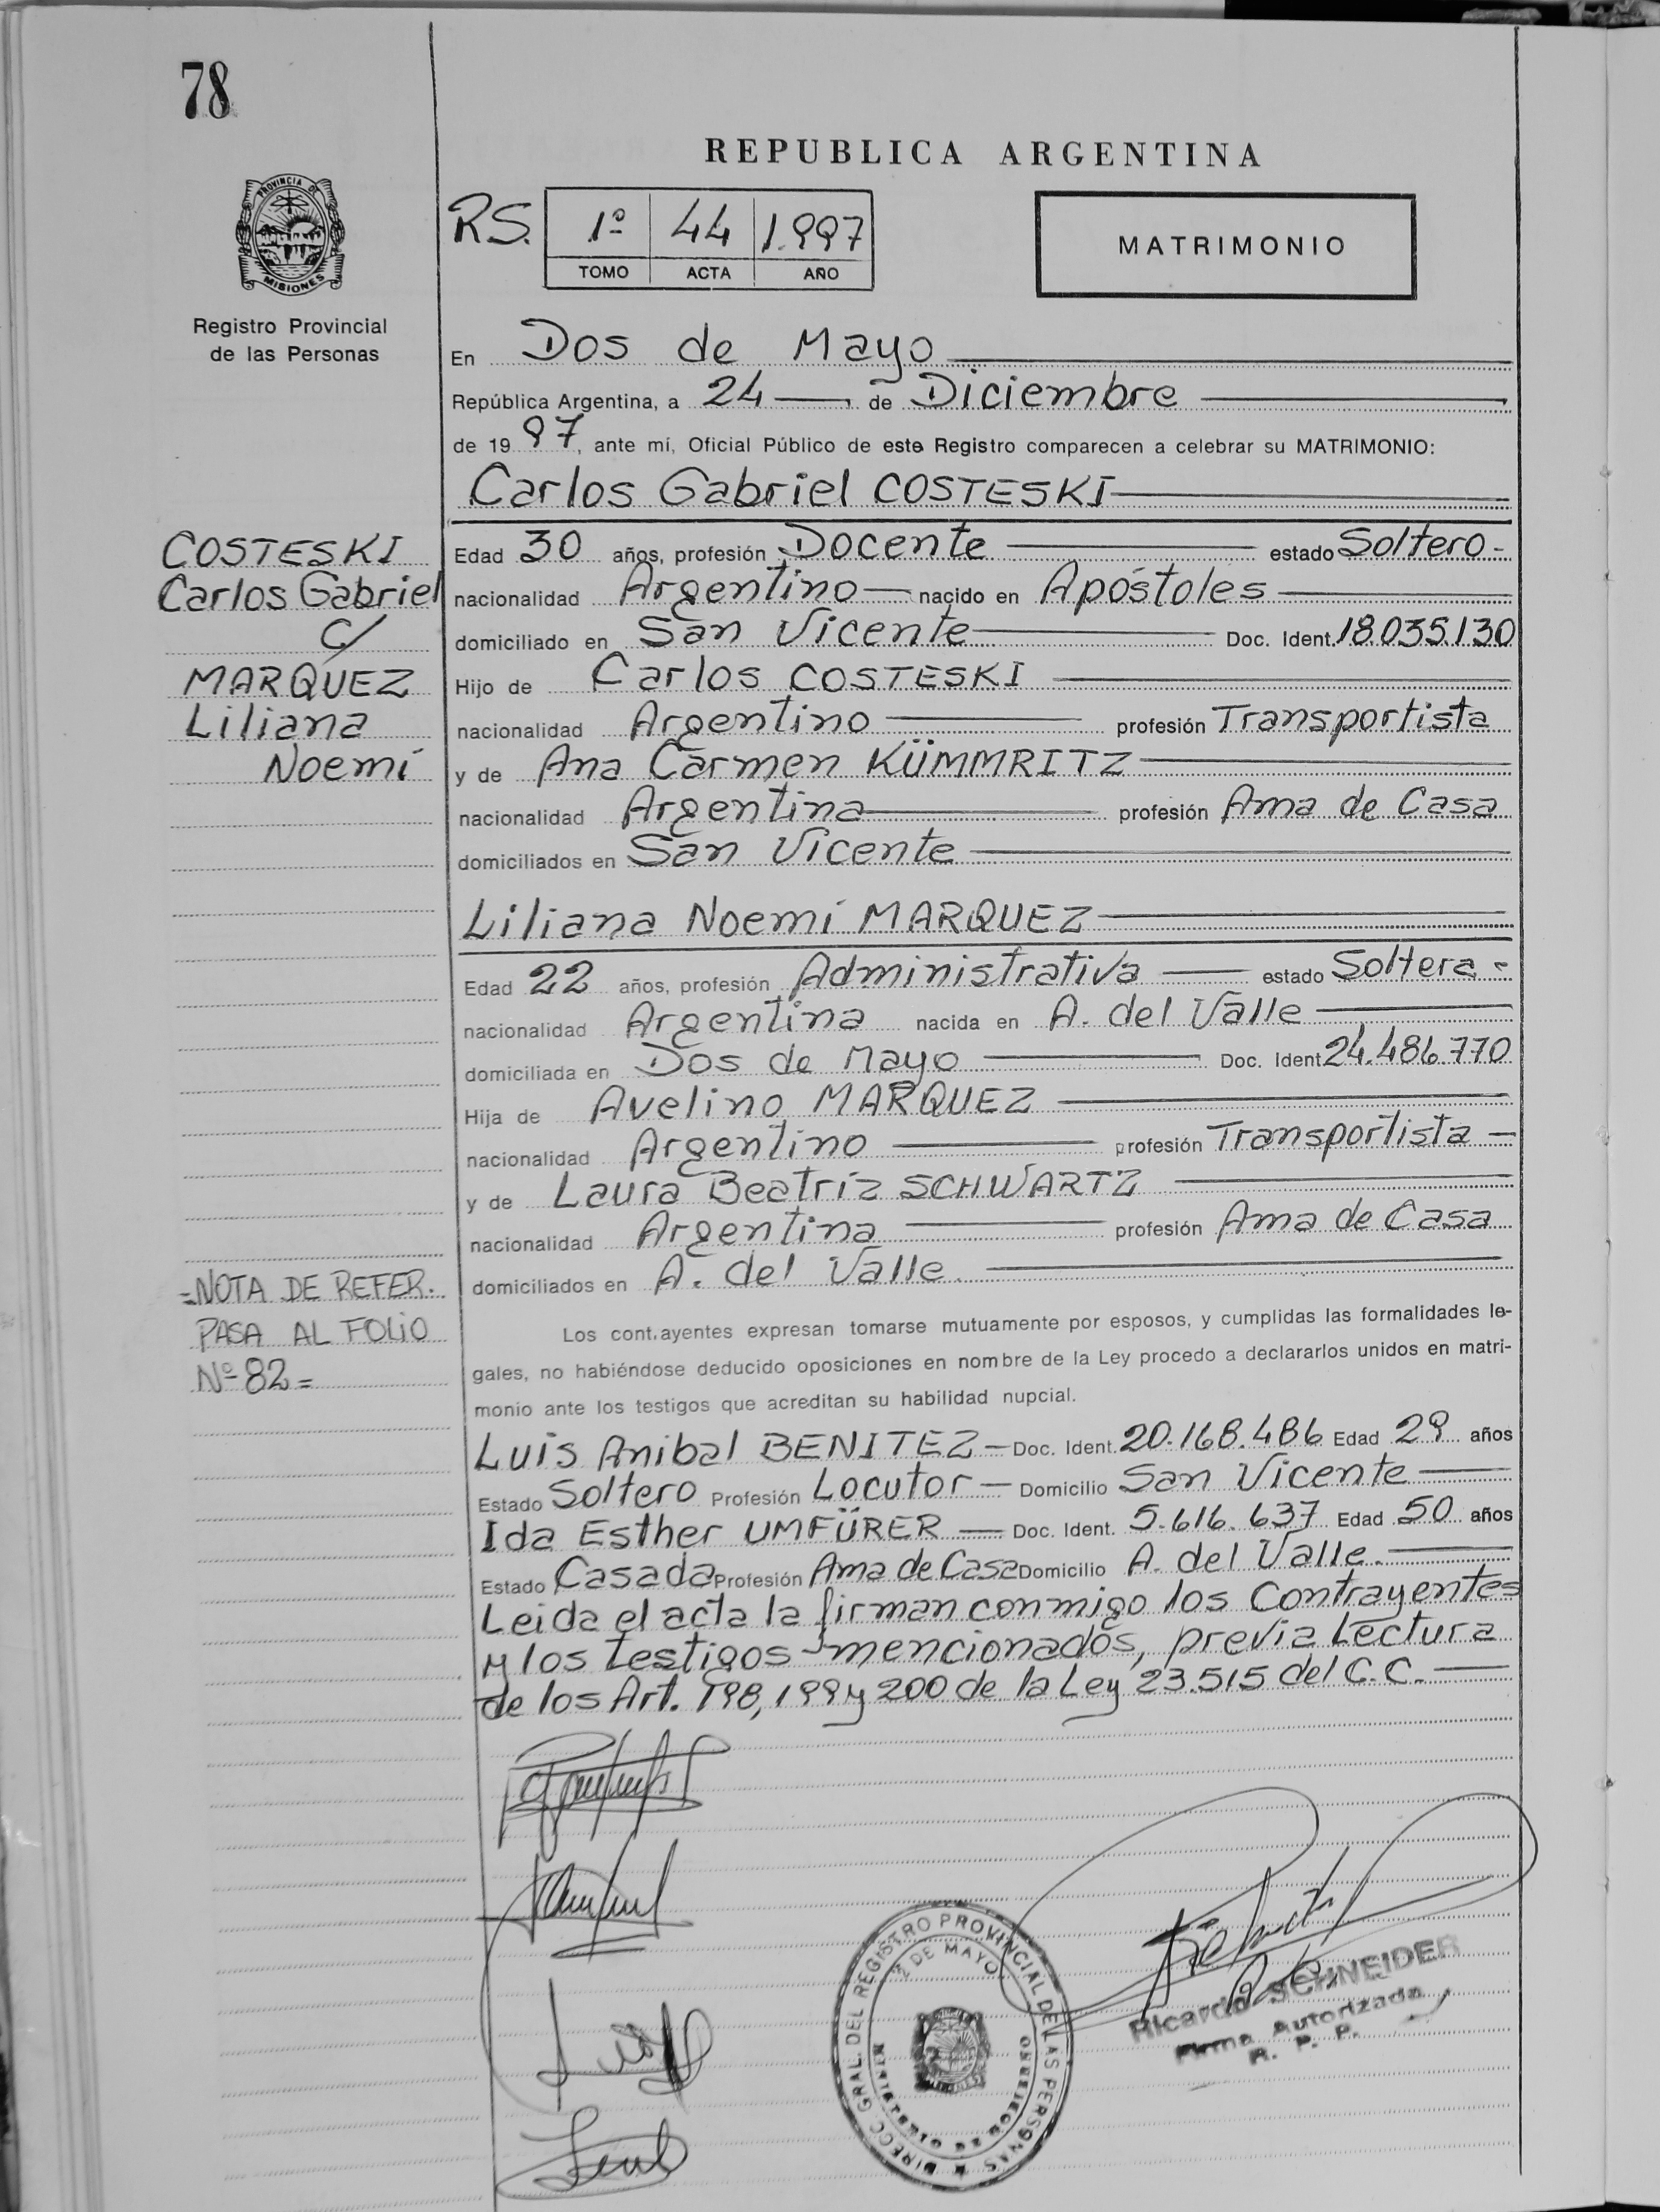 78
REPUBLICA ARGENTINA
PROVINCIA DE
MISIONES
Registro Provincial
de las Personas
RS. 1º 44 1.997
TOMO ACTA AÑO
MATRIMONIO
En Dos de Mayo
República Argentina, a 24 de Diciembre
de 19 97, ante mí, Oficial Público de este Registro comparecen a celebrar su MATRIMONIO:
Carlos Gabriel COSTESKI
COSTESKI
Carlos Gabriel
c/
MARQUEZ
Liliana
Noemí
Edad 30 años, profesión Docente estado Soltero-
nacionalidad Argentino nacido en Apóstoles
domiciliado en San Vicente Doc. Ident. 18.035.130
Hijo de Carlos COSTESKI
nacionalidad Argentino profesión Transportista
y de Ana Carmen KÜMMRITZ
nacionalidad Argentina profesión Ama de Casa
domiciliados en San Vicente
Liliana Noemí MARQUEZ
Edad 22 años, profesión Administrativa estado Soltera-
nacionalidad Argentina nacida en A. del Valle
domiciliada en Dos de Mayo Doc. Ident 24.486.770
Hija de Avelino MARQUEZ
nacionalidad Argentino profesión Transportista
y de Laura Beatriz SCHWARTZ
nacionalidad Argentina profesión Ama de Casa
domiciliados en A. del Valle
=NOTA DE REFER.
PASA AL FOLIO
Nº 82=
Los cont.ayentes expresan tomarse mutuamente por esposos, y cumplidas las formalidades le-
gales, no habiéndose deducido oposiciones en nombre de la Ley procedo a declararlos unidos en matri-
monio ante los testigos que acreditan su habilidad nupcial.
Luis Anibal BENITEZ Doc. Ident. 20.168.486 Edad 29 años
Estado Soltero Profesión Locutor Domicilio San Vicente
Ida Esther UMFÜRER Doc. Ident. 5.616.637 Edad 50 años
Estado Casada Profesión Ama de Casa Domicilio A. del Valle.
Leida el acta la firman conmigo los Contrayentes
y los testigos mencionados, previa Lectura
de los Art. 198, 199 y 200 de la Ley 23.515 del C.C.
DIRECC. GRAL. DEL REGISTRO PROVINCIAL DE LAS PERSONAS
2 DE MAYO
MINISTERIO DE GOBIERNO
Ricardo SCHNEIDER
Firma Autorizada
R. P. P.